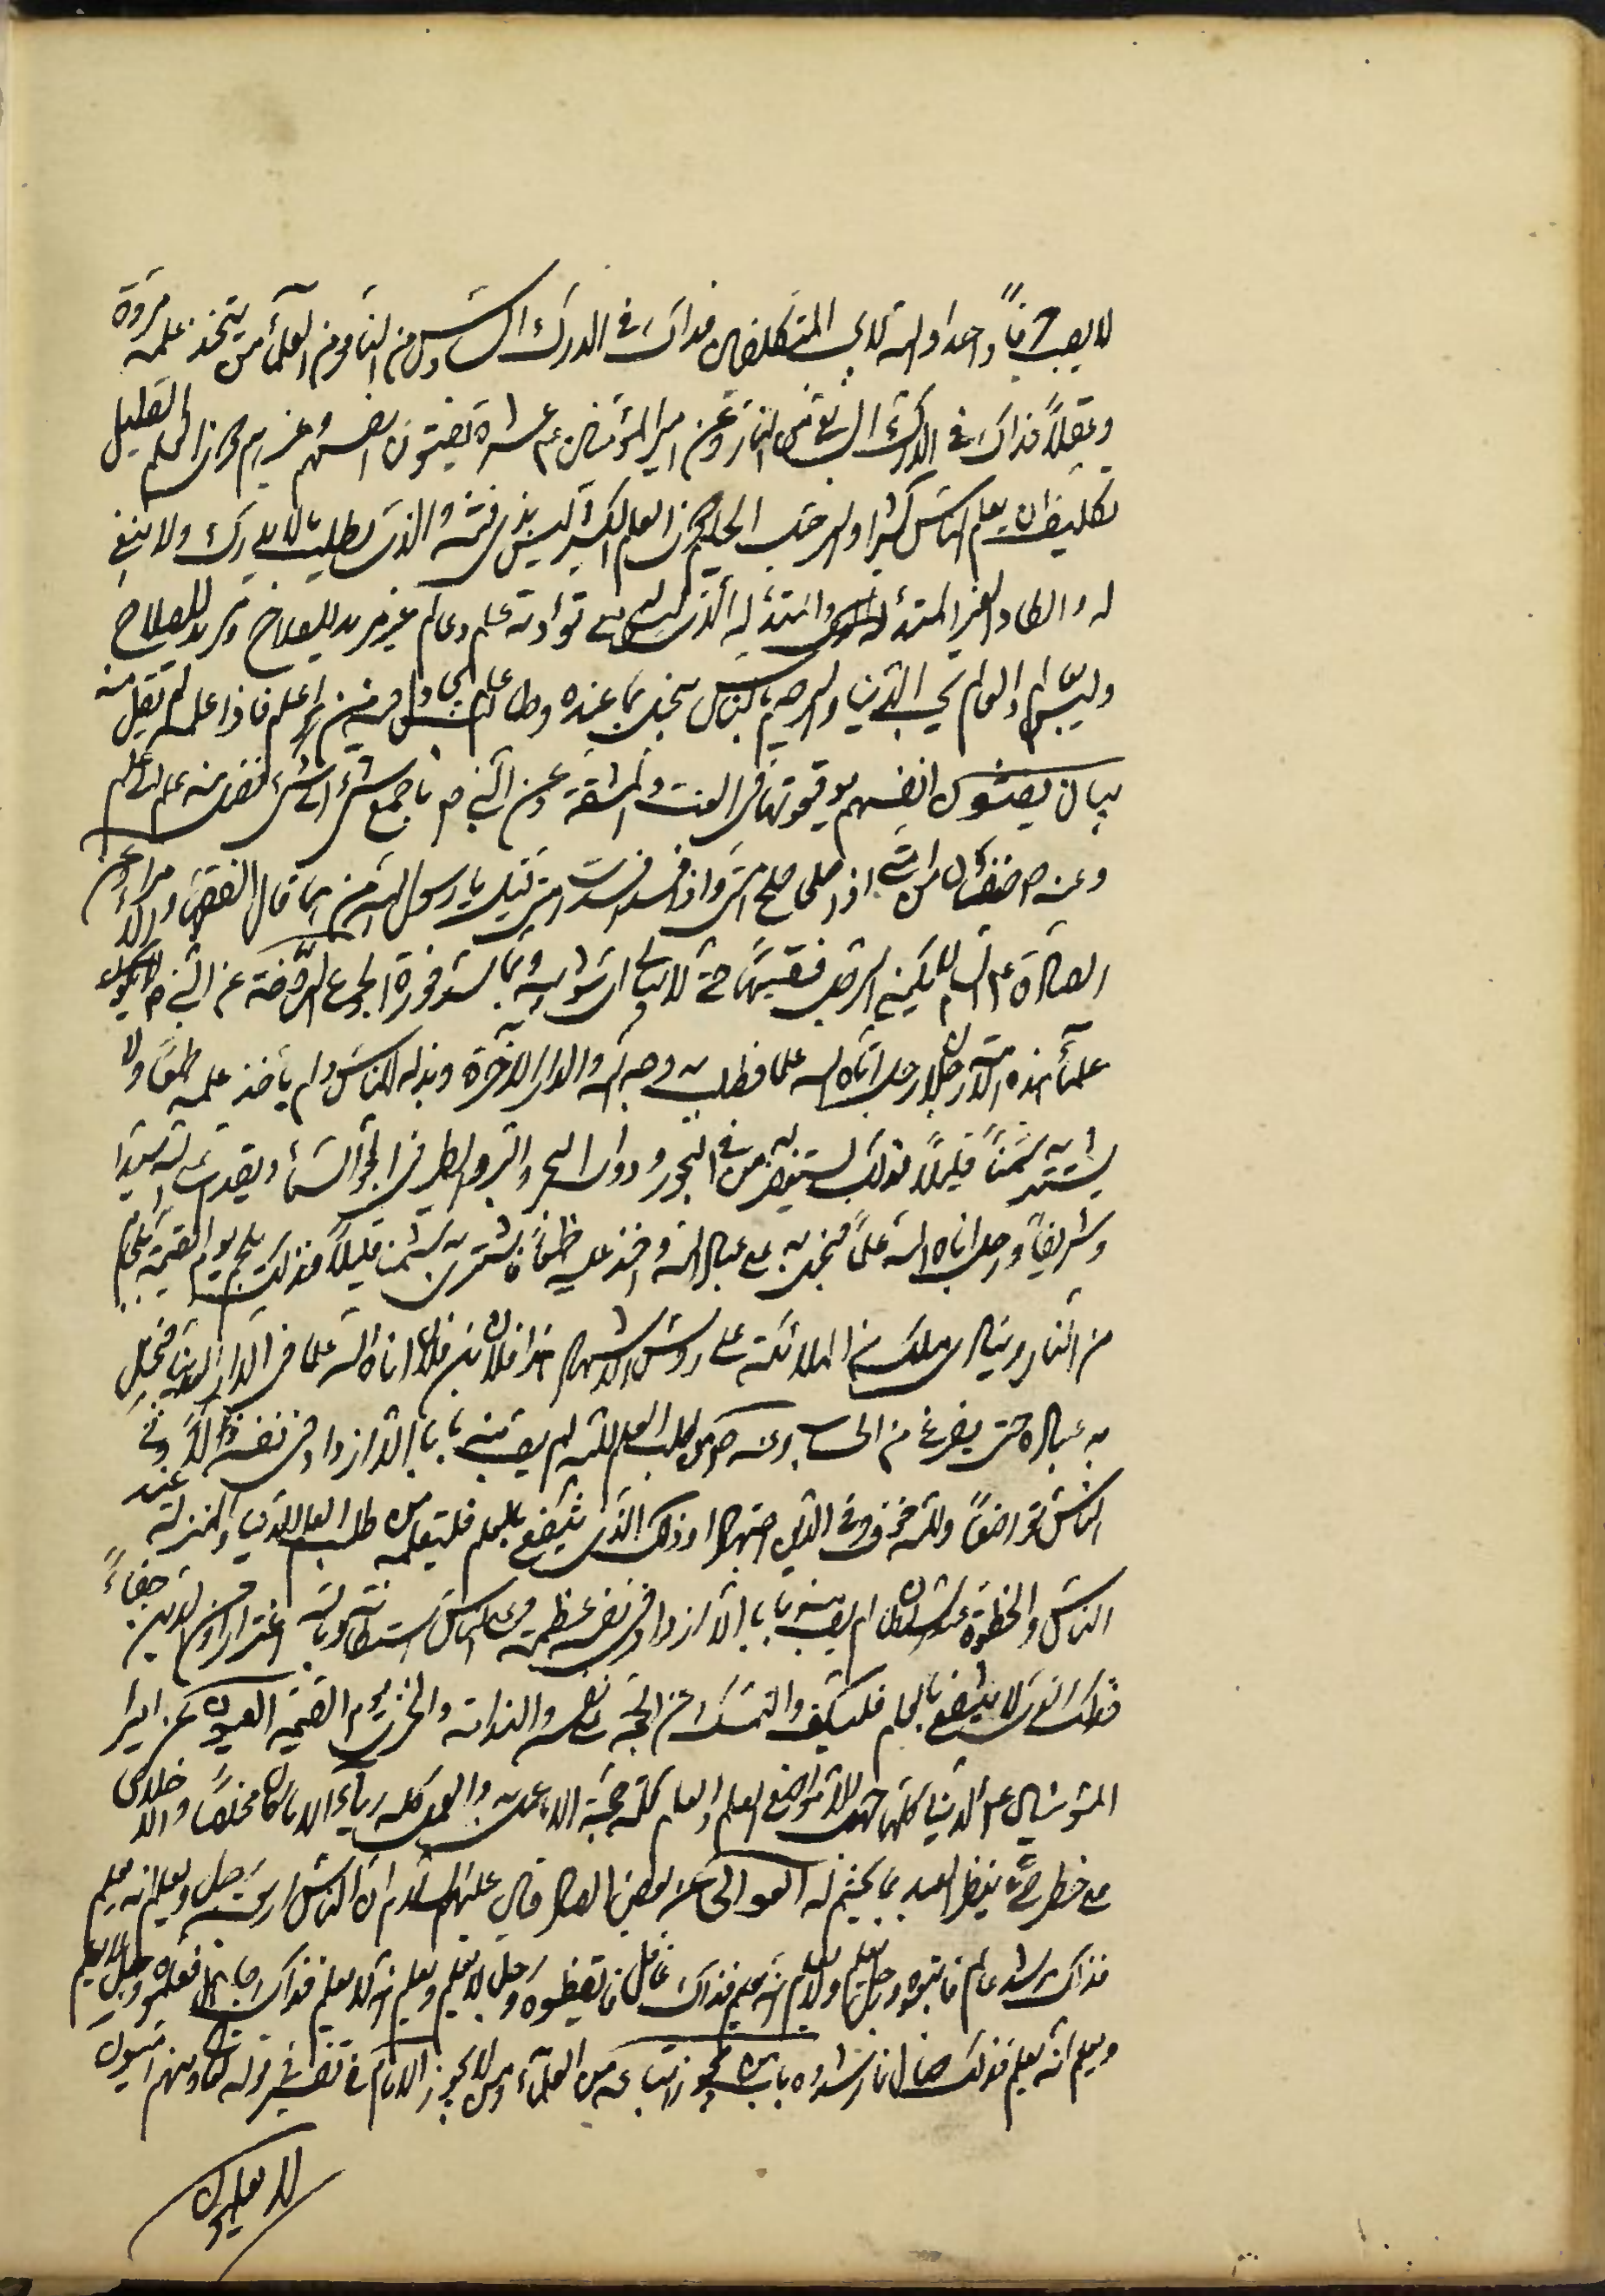 لا يصيب حرفاً واحدا والله لا يحب المتكلفين فذاك في الدرك السادس من النار ومن العلماء من يتخذ علمه مروة
وعقلاً فذاك في الدرك السابع من النار وعن امير المؤمنين ع عشرة يفتنون انفسهم وغيرهم ذو العلم القليل
يتكلف ان يعلم الناس كثيرا والرجل الحليم ذو العلم الكثير ليس بذي فطنة والذي يطلب ما لا يدرك ولا ينبغي
له والكاد الغير المتئد والمتئد الذي ليس له مع تؤدته علم وعالم غير مريد للصلاح ومريد للصلاح
وليس بعالم والعالم يحب الدنيا والرحيم بالناس يبخل بما عنده وطالب العلم يجادل فيه من هو اعلم فاذا علمه لم يقبل منه
بيان يعنتون انفسهم يوقعونها في العنت والمشقة وعن النبي ص ما جمع شيء الى شيء افضل من علم الى حلم
وعنه ص صنفان من امتي اذا صلحا صلح امتي واذا فسدا فسدت امتي قيل يا رسول الله من هما قال الفقهاء والامراء وعن
الصادق ع لا يكون الرجل فقيها حتى لا يبالي اي ثوبيه وبما سد فورة الجوع الروضة عن النبي ص
علماء هذه الامة رجلان رجل اتاه الله علما فطلب به وجه الله والدار الاخرة وبذله للناس ولم يأخذ عليه طمعاً ولا
يشتر به ثمناً قليلاً فذلك يستغفر له من في البحور ودواب البحر والبر والطير في جو السماء ويقدم على الله سيدا
وشريفاً ورجل اتاه الله علماً فبخل به على عباد الله واخذ عليه طمعاً واشترى به ثمنا قليلاً فذلك يلجم يوم القيمة بلجام
من النار وينادي ملك من الملائكة على رؤس الاشهاد هذا فلان بن فلان اتاه الله علما في الدار الدنيا فبخل
به عباده حتى يفرغ من الحساب وعنه ص من طلب العلم لله لم يصب منه بابا الا ازداد في نفسه ذلا وفي
الناس تواضعاً ولله خوفا وفي الدين اجتهادا وذلك الذي ينتفع بالعلم فليتعلمه ومن طلب العلم للدنيا والمنزلة عند
الناس والحظوة عند السلطان لم يصب منه بابا الا ازداد في نفسه عظمة وعلى الناس استطالة وبالله اغترارا ومن الدين جفاءً
فذلك الذي لا ينتفع بالعلم فليكف وليمسك عن الحجة على نفسه والندامة والخزي يوم القيمة العيون عن امير
المؤمنين ع الدنيا كلها جهل الا مواضع العلم والعلم كله حجة الا ما عمل به والعمل كله رياء الا ما كان مخلصاً والاخلاص
على خطر حتى ينظر العبد بما يختم له العوالي عن بعض الصادقين عليهم السلام ان الناس اربعة رجل يعلم ويعلم انه يعلم
فذاك مرشد عالم فاتبعوه ورجل يعلم ولا يعلم انه يعلم فذاك غافل فايقظوه ورجل لا يعلم ويعلم انه لا يعلم فذاك جاهل فعلموه ورجل لا يعلم
ويعلم انه يعلم فذلك ضال فارشدوه باب من يجوز اتباعه من العلماء ومن لا يجوز الامام في تفسير قوله تعالى ومنهم اميون
لا يعلمون